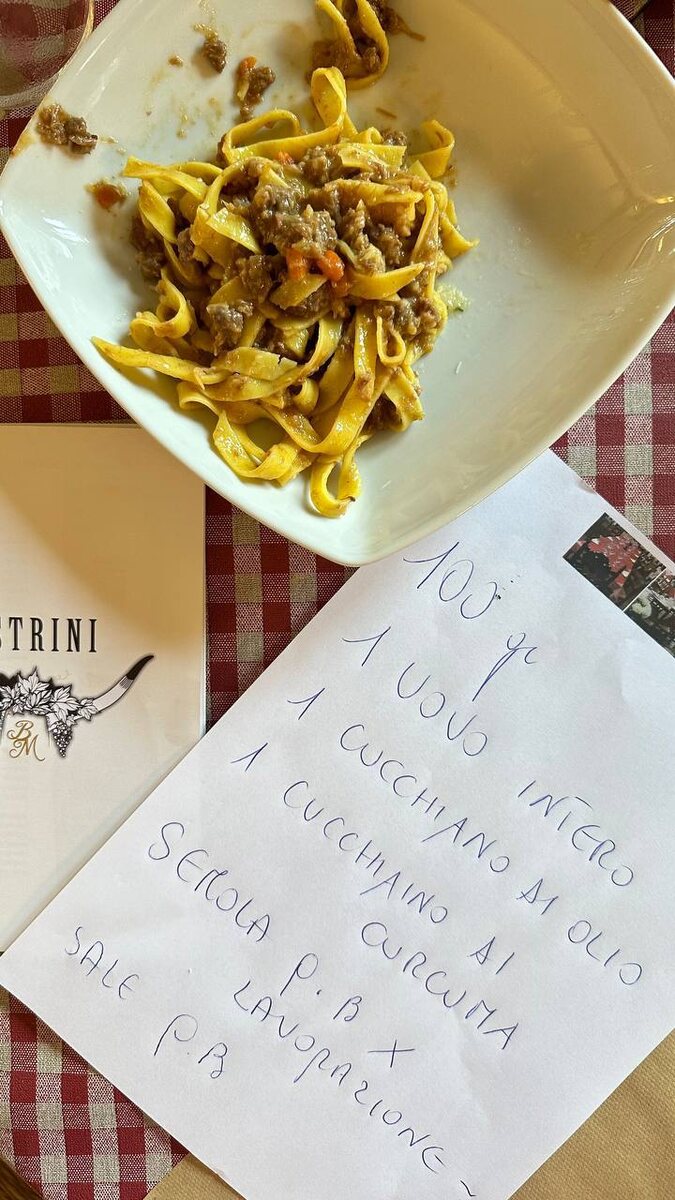 STRINI
BM
100 gr
1 UOVO INTERO
1 CUCCHIANO DI OLIO
1 CUCCHIAINO DI
CURCUMA
SEMOLA P.B X
LAVORAZIONE ~
SALE P.B